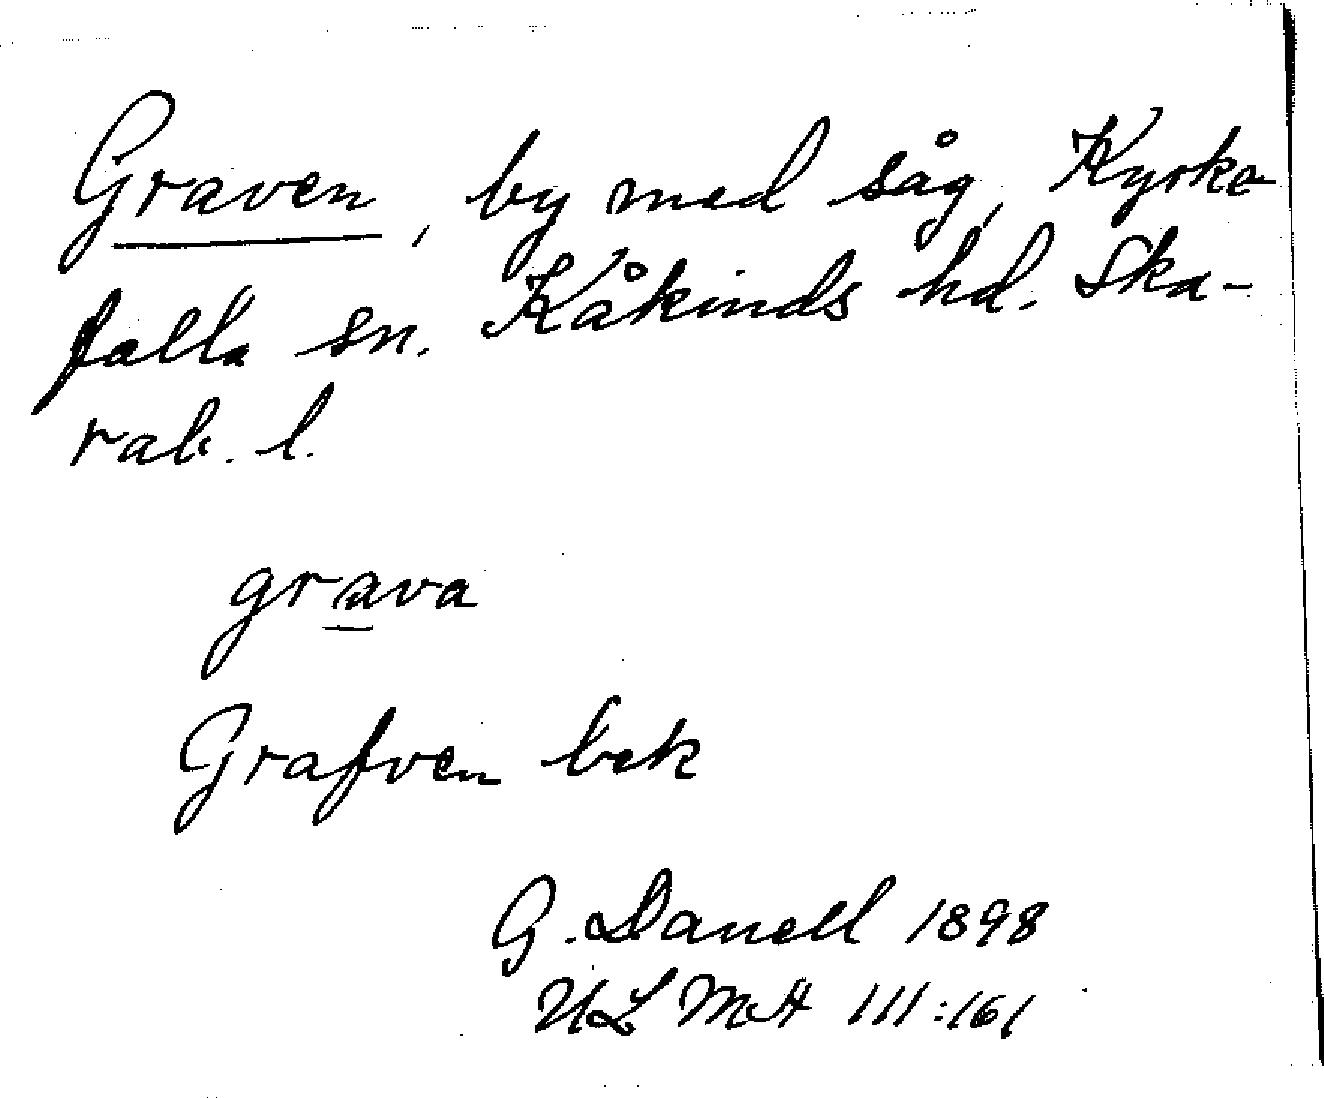 Graven, by med såg, Kyrke-
falla sn. Kåkinds hd. Ska-
rab. l.
grava
Grafven bek
G. Danell 1898
ULMA 111:161